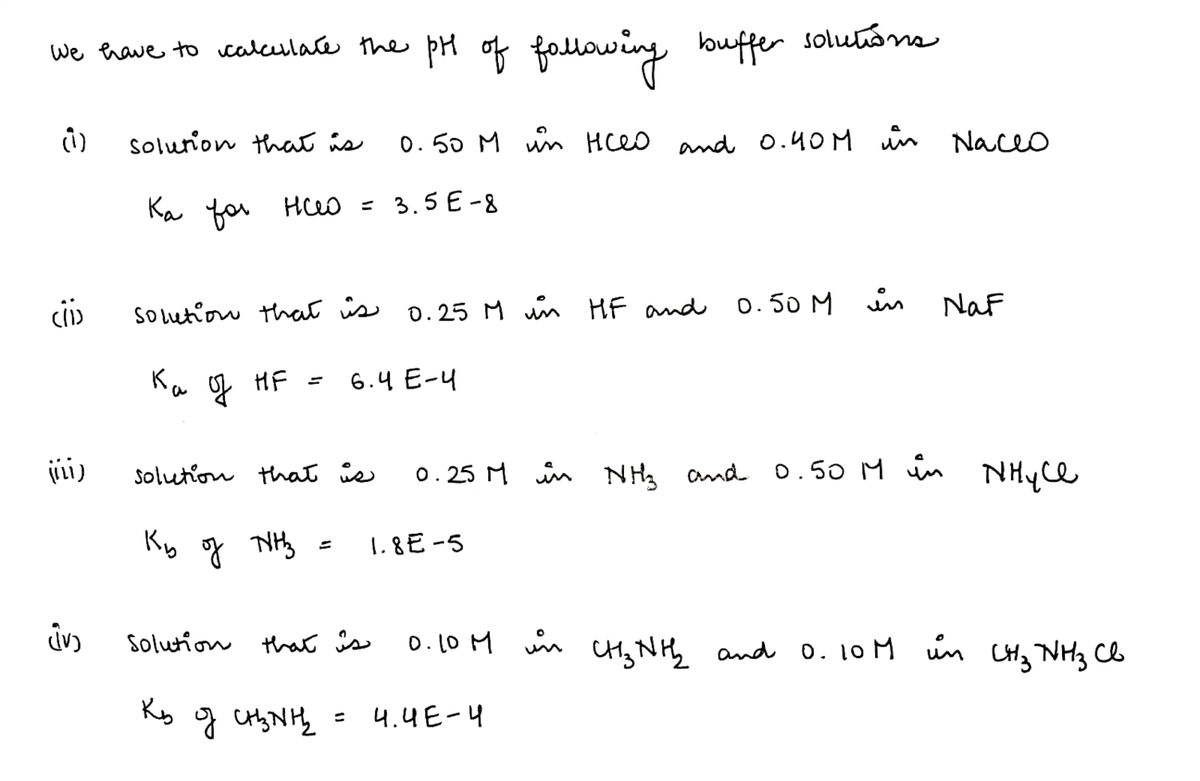 We have to calculate the pH of following buffer solutions
(i) solution that is 0.50 M in HClO and 0.40 M in NaClO
Ka for HClO = 3.5 E-8
(ii) solution that is 0.25 M in HF and 0.50 M in NaF
Ka of HF = 6.4 E-4
(iii) solution that is 0.25 M in NH3 and 0.50 M in NH4Cl
Kb of NH3 = 1.8E-5
(iv) Solution that is 0.10 M in CH3NH2 and 0.10 M in CH3NH3Cl
Kb of CH3NH2 = 4.4E-4